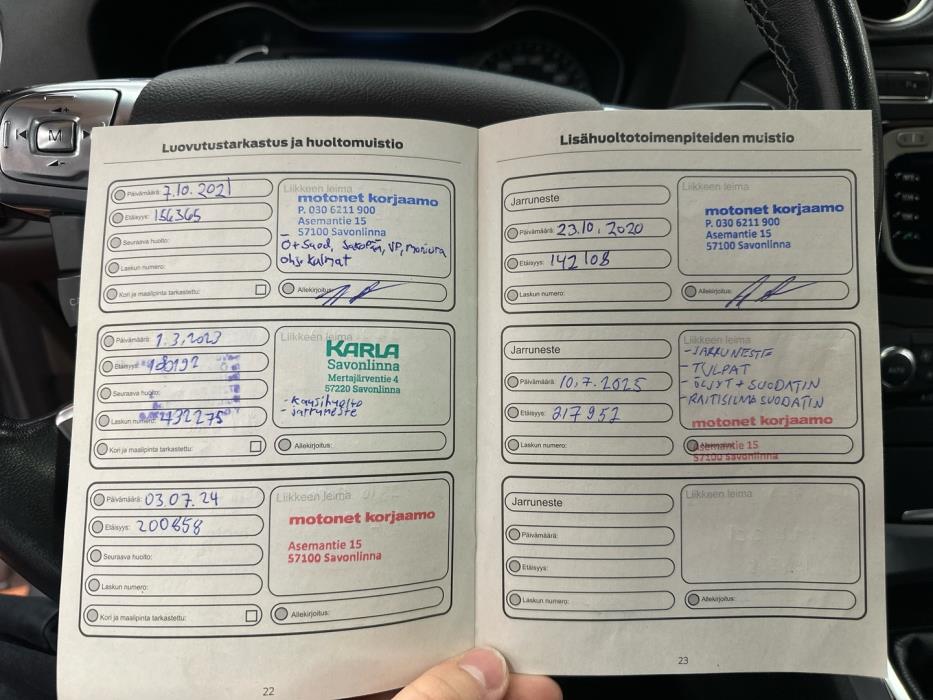 M
Luovutustarkastus ja huoltomuistio
Päivämäärä: 7.10.2021
Etäisyys: 156365
Seuraava huolto:
Laskun numero:
Kori ja maalipinta tarkastettu:
Liikkeen leima
motonet korjaamo
P. 030 6211 900
Asemantie 15
57100 Savonlinna
Ö+Suod, VP,
Allekirjoitus:
Päivämäärä: 1.3.2023
Etäisyys:
Seuraava huolto:
Laskun numero: 432275
Kori ja maalipinta tarkastettu:
Liikkeen leima
KARLA
Savonlinna
Mertajärventie 4
57220 Savonlinna
- Kausihuolto
- jarruneste
Allekirjoitus:
Päivämäärä: 03.07.24
Etäisyys: 200858
Seuraava huolto:
Laskun numero:
Kori ja maalipinta tarkastettu:
Liikkeen leima
motonet korjaamo
Asemantie 15
57100 Savonlinna
Allekirjoitus:
22
Lisähuoltotoimenpiteiden muistio
Jarruneste
Päivämäärä: 23.10.2020
Etäisyys: 142108
Laskun numero:
Liikkeen leima
motonet korjaamo
P. 030 6211 900
Asemantie 15
57100 Savonlinna
Allekirjoitus:
Jarruneste
Päivämäärä: 10.7.2025
Etäisyys: 217952
Laskun numero:
Liikkeen leima
- JARRUNESTE
- TULPAT
- ÖLJYT + SUODATIN
- RAITISILMASUODATIN
motonet korjaamo
Asemantie 15
57100 Savonlinna
Jarruneste
Päivämäärä:
Etäisyys:
Laskun numero:
Liikkeen leima
Allekirjoitus:
23
AUTO